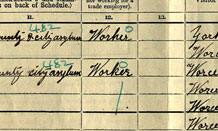 on back of Schedule.)
or working for a
trade employer).
11.
12.
482
County & city asylum Worker 0 York
Worc
482
County city asylum Worker 0 Worce
Worce
Worce
Worc